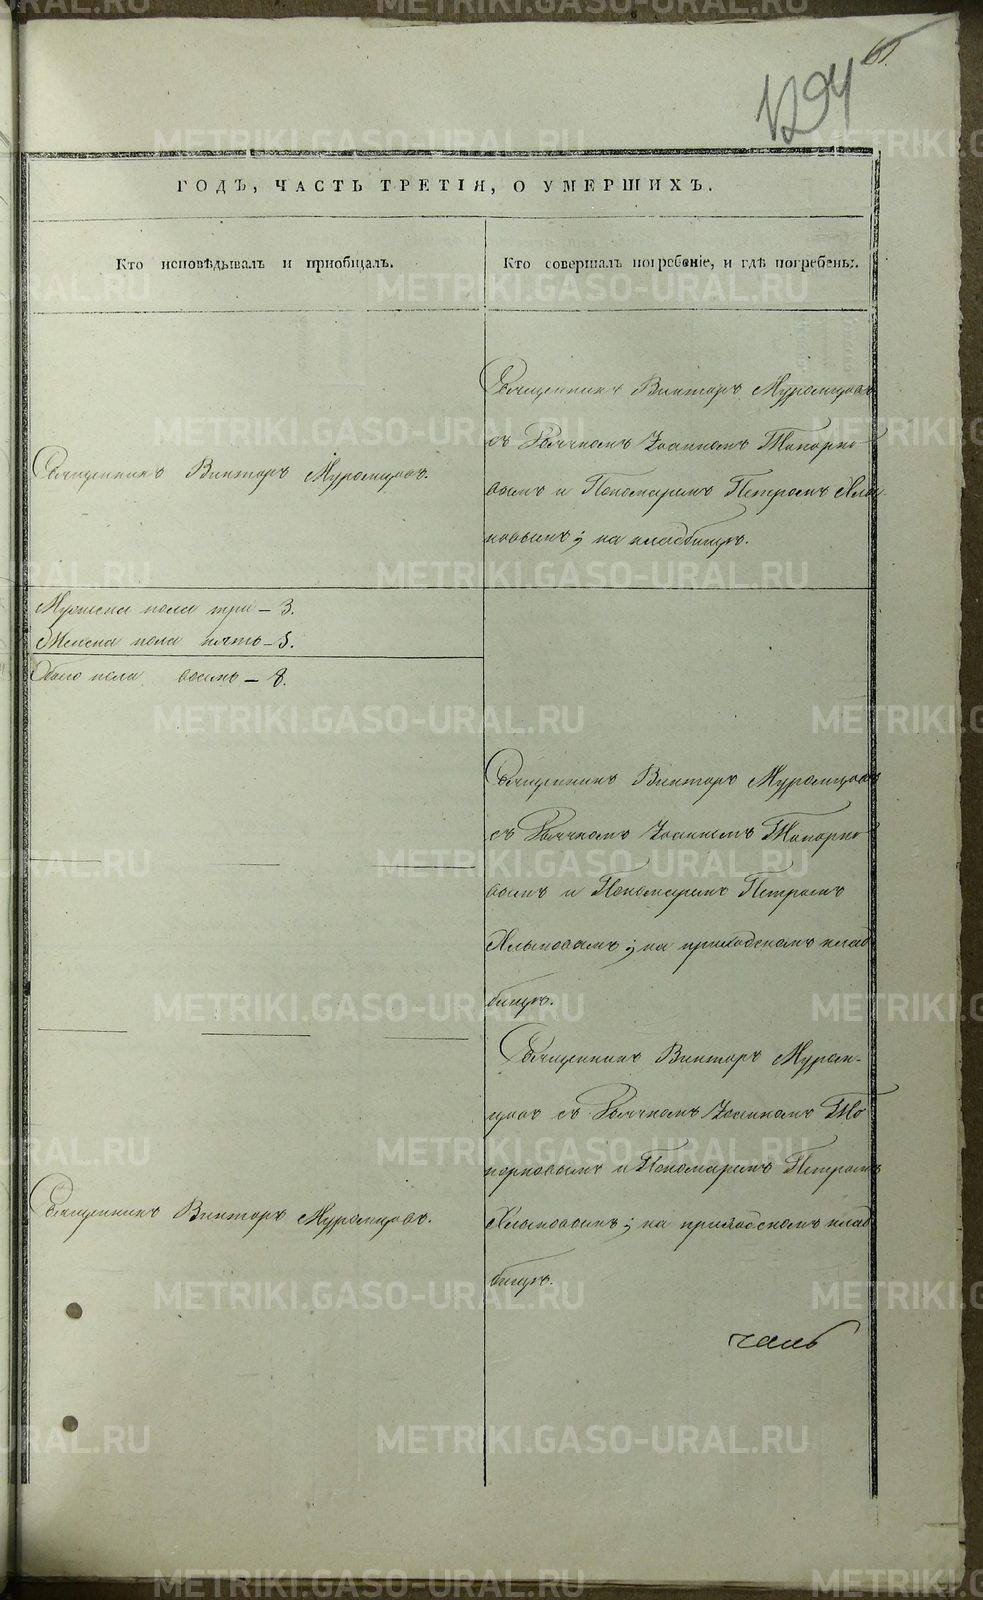 65.
1294
ГОДЪ, ЧАСТЬ ТРЕТІЯ, О УМЕРШИХЪ.
Кто исповѣдывалъ и приобщалъ.
Кто совершалъ погребеніе, и гдѣ погребены.
Священникъ Викторъ Муромцовъ.
Священникъ Викторъ Муромцовъ
съ Дьячкомъ Іоанномъ Топорко-
вымъ и Пономаремъ Петромъ Хлы-
новымъ; на кладбищѣ.
Мужеска пола три – 3.
Женска пола пять – 5.
Обоего пола восемь – 8.
Священникъ Викторъ Муромцовъ
съ Дьячкомъ Іоанномъ Топорко-
вымъ и Пономаремъ Петромъ
Хлыновымъ; на приходскомъ клад-
бищѣ.
Священникъ Викторъ Муромцовъ.
Священникъ Викторъ Муром-
цовъ съ Дьячкомъ Іоанномъ То-
порковымъ и Пономаремъ Петромъ
Хлыновымъ; на приходскомъ клад-
бищѣ.
METRIKI.GASO-URAL.RU